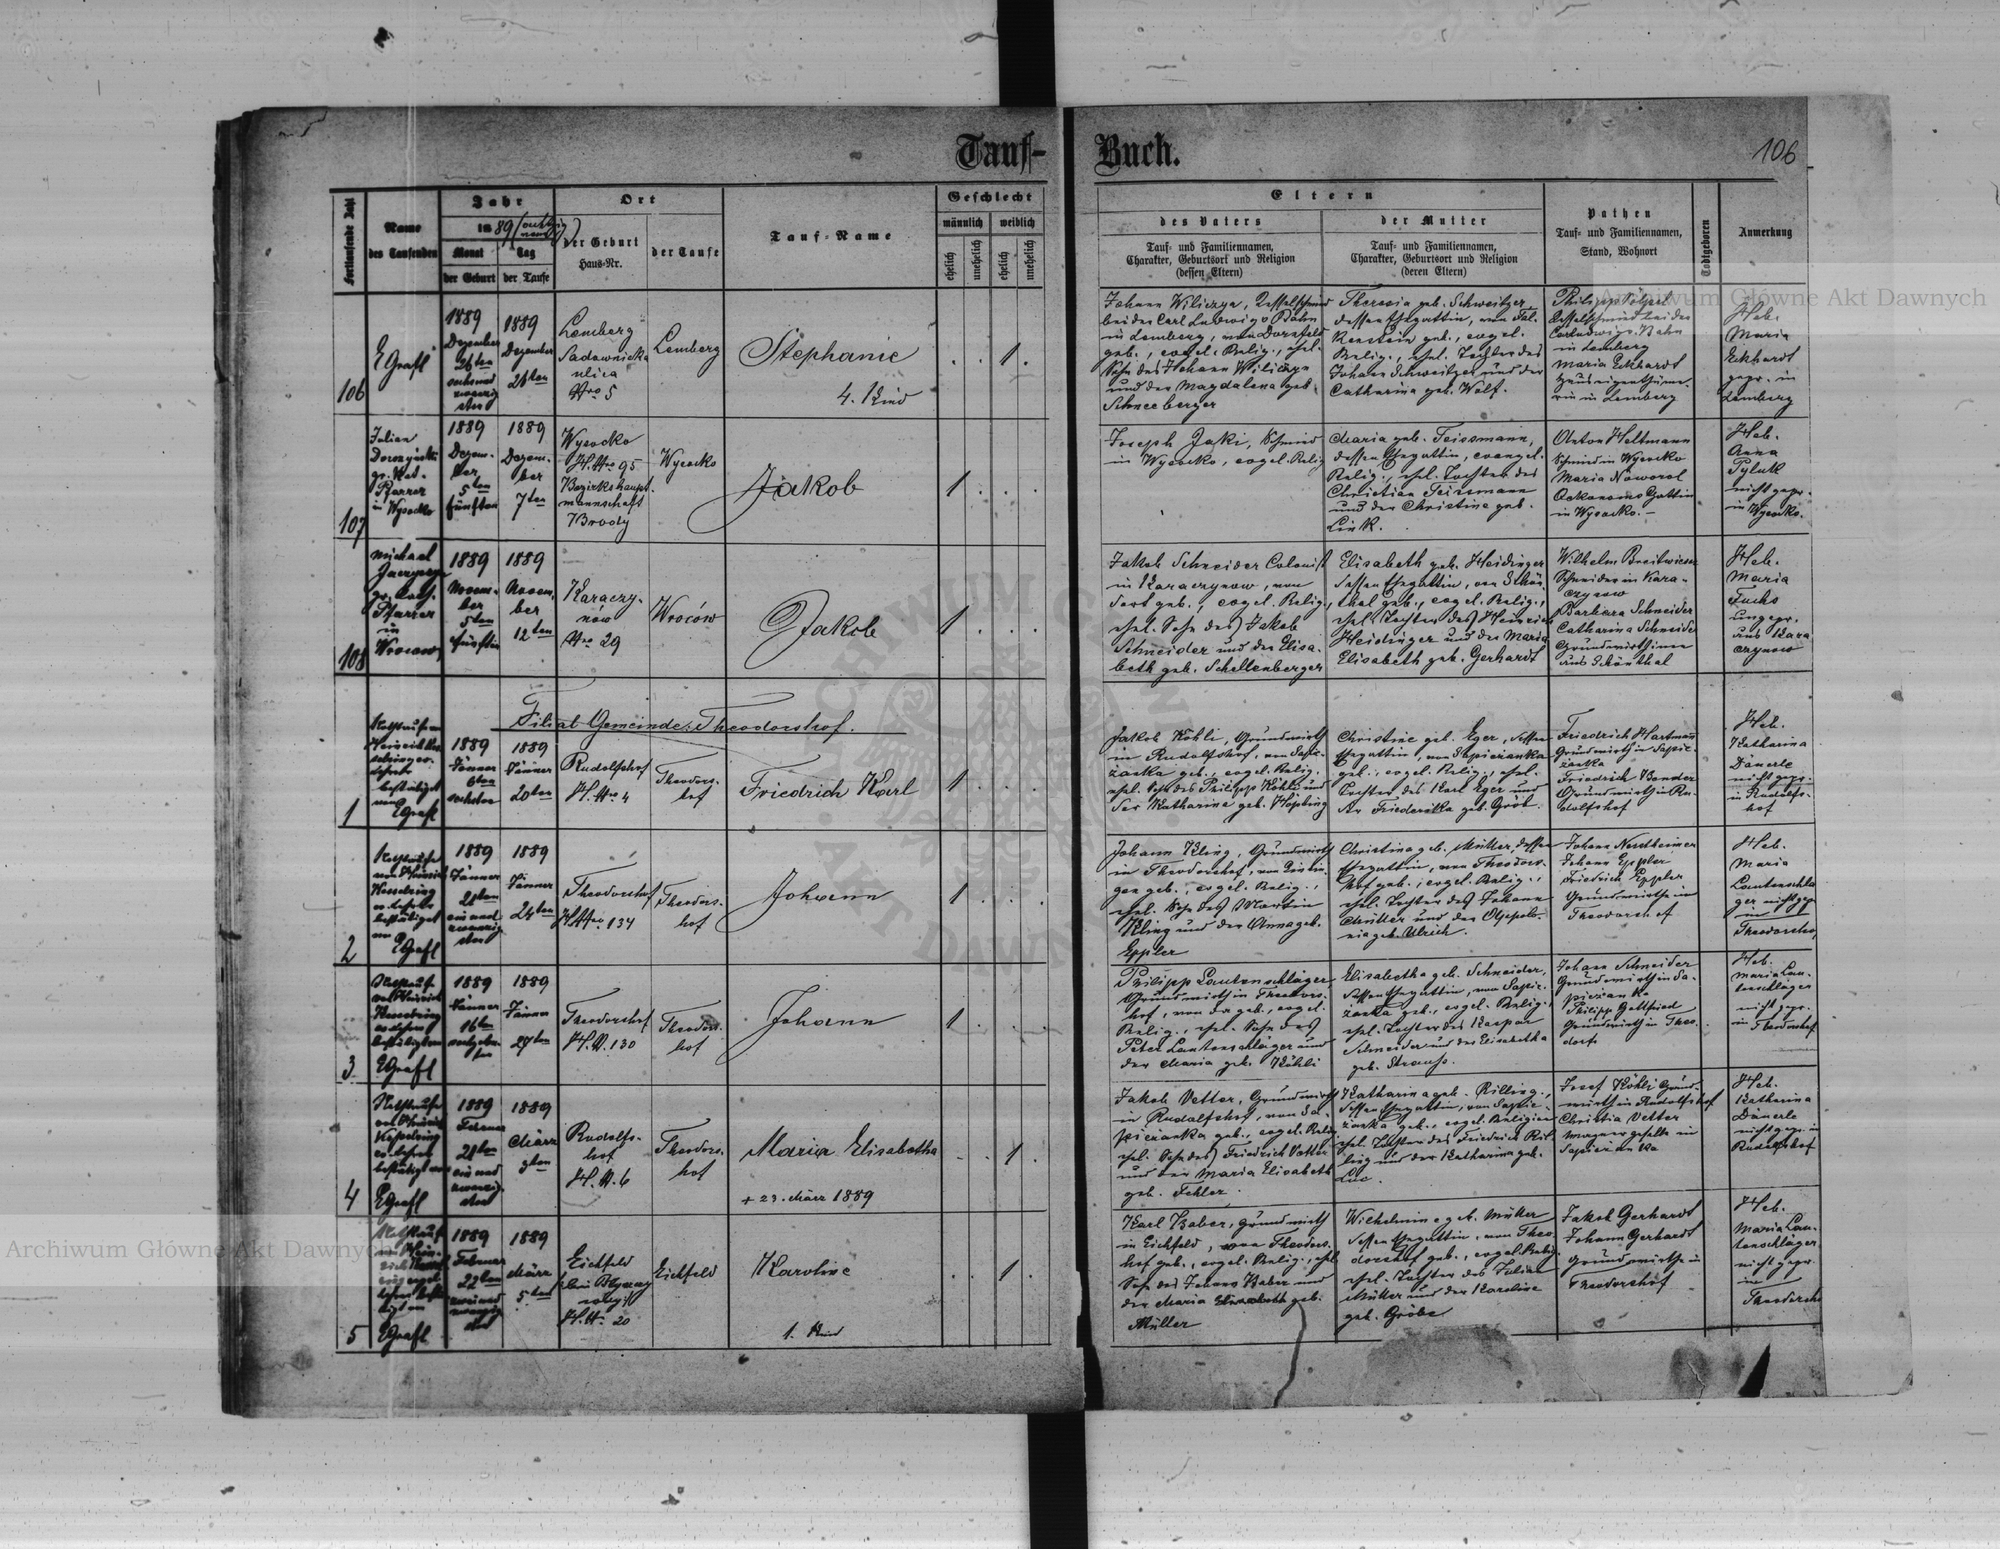 Tauf-Buch.
106
Fortlaufende Zahl
Name
des Taufenden
Jahr
1889
Monat
Tag
der Geburt
der Taufe
Ort
der Geburt
Haus-Nr.
der Taufe
Tauf-Name
Geschlecht
männlich
weiblich
ehelich
unehelich
ehelich
unehelich
Eltern
des Vaters
Tauf- und Familiennamen,
Charakter, Geburtsort und Religion
(dessen Eltern)
der Mutter
Tauf- und Familiennamen,
Charakter, Geburtsort und Religion
(deren Eltern)
Pathen
Tauf- und Familiennamen,
Stand, Wohnort
Todtgeboren
Anmerkung
106
EGrafl
1889
Dezember
26ten
1889
Dezember
Lemberg
Sadownicka
ulica
Nro 5
Lemberg
Stephanie
4. Kind
1
in Lemberg, von Dornfeld
geb., evgel. Relig., ehel.
Sohn des Johann
und der Magdalena geb.
Schneeberger
Theresia geb. Schweitzer
dessen Ehegattin, von Fal-
kenstein geb., evgel.
Relig., ehel. Tochter des
Johann Schweitzer und der
Catharina geb. Wolf.
in Lemberg
Maria Eckhardt
in Lemberg
Heb.
Maria
Eckhardt
gepr. in
Lemberg
107
Julian
gr. Kat.
Pfarrer
in Wysocko
1889
Dezem-
ber
5ten
fünften
1889
Dezem-
ber
7ten
Wysocko
H. Nro 95
Bezirkshaupt-
mannschaft
Brody
Wysocko
Jakob
1
Joseph Jaki, Schmied
in Wysocko, evgel. Relig.
Maria geb. Teissmann,
dessen Ehegattin, evangel.
Relig., ehel. Tochter des
Christian Teissmann
und der Christine geb.
Link.
Anton Heltmann
Schmied in Wysocko
Maria Noworol
Oekonoms Gattin
in Wysocko. -
Heb.
Anna
nicht gepr.
in Wysocko.
108
Michael
Pfarrer
in
Wrocow
1889
Novem-
ber
5ten
fünften
1889
Novem-
ber
12ten
Karaczy-
nów
Nro 29
Wroców
Jakob
1
Jakob Schneider Colonist
in Karaczynow, von
geb., evgel. Relig.,
ehel. Sohn des Jakob
Schneider und der Elisa-
beth geb. Schellenberger
Elisabeth geb. Heidinger
dessen Ehegattin, von Schön-
thal geb., evgel. Relig.,
ehel. Tochter des Heinrich
Heidinger und der Maria
Elisabeth geb. Gerhardt
Wilhelm Breitwieser
Schneider in Kara-
czynow
Barbara Schneider
Catharina Schneider
Grundwirthinnen
aus Schönthal
Heb.
Maria
Fuchs
ungepr.
aus Kara
czynow
Filial Gemeinde: Theodorshof.
1
EGrafl
1889
Jänner
6ten
sechsten
1889
Jänner
20ten
Rudolfshof
H. Nro 4
Theodors-
hof
Friedrich Karl
1
Jakob Köhli, Grundwirth
in Rudolfshof, von Sapie-
żanka geb., evgel. Relig.
ehel. Sohn des Philipp Köhli und
der Katharina geb. Höpting
Christine geb. Eger, dessen
Ehegattin, von Sapieżanka
geb., evgel. Relig., ehel.
Tochter des Karl Eger und
der Friederika geb. Gröb.
Friedrich Hartmann
Grundwirth in Sapie-
żanka
Friedrich Bender
Grundwirth in Ru-
dolfshof
Heb.
Katharina
Dänerle
nicht gepr.
in Rudolfs-
hof
2
EGrafl
1889
Jänner
21ten
1889
Jänner
24ten
Theodorshof
H. Nro 134
Theodors-
hof
Johann
1
Johann Kling, Grundwirth
in Theodorshof,
geb., evgel. Relig.,
ehel. Sohn des Martin
Kling und der Anna geb.
Eppler
Christina geb. Müller, dessen
Ehegattin, von Theodors-
hof geb., evgel. Relig.,
ehel. Tochter des Johann
Müller und der Appolo-
nia geb. Ulrich.
Johann Nordheimer
Johann Eppler
Friedrich Eppler
Grundwirthe in
Theodorshof
Heb.
Maria
Lautenschlä
ger nicht gep
in
Theodorshof
3
EGrafl
1889
Jänner
16ten
1889
Jänner
27ten
Theodorshof
H. N. 130
Theodors-
hof
Johann
1
Philipp Lautenschläger
Grundwirth in Theodors-
hof, von da geb., evgel.
Relig., ehel. Sohn des
Peter Lautenschläger und
der Maria geb. Köhli
Elisabetha geb. Schneider,
dessen Ehegattin, von Sapie-
żanka geb., evgel. Relig.,
ehel. Tochter des Kaspar
Schneider und der Elisabetha
geb. Strauss.
Johann Schneider
Grundwirth in Sa-
piezanka
Philipp Gottfried
Grundwirth in Theo-
dorf
Heb.
Maria Lau-
tenschläger
nicht gepr.
in Theodorshof
4
EGrafl
1889
Februar
21ten
1889
März
9ten
Rudolfs-
hof
H. N. 6
Theodors-
hof
Maria Elisabetha
+ 23. März 1889
1
Jakob Vetter, Grundwirth
in Rudolfshof, von Sa-
pieżanka geb., evgel. Relig.
ehel. Sohn des Friedrich Vetter
und der Maria Elisabeth
geb. Fehler.
Katharina geb. Rilling,
dessen Ehegattin, von Sapie-
żanka geb., evgel. Religion
ehel. Tochter des Friedrich Ril-
ling und der Katharina geb.
Luc.
Josef Köhli Grund-
wirth in Rudolfshof
Christia Vetter
in
Sapieżanka
Heb.
Katharina
Dänerle
nicht gepr. in
Rudolfshof
5
EGrafl
1889
Februar
22ten
1889
März
5ten
Eichfeld
H. N. 20
Eichfeld
Karoline
1. Kind
1
Karl Baber, Grundwirth
in Eichfeld, von Theodors-
hof geb., evgel. Relig., ehel.
Sohn des Johann Baber und
der Maria Elisabeth geb.
Müller
Wilhelmine geb. Müller
dessen Ehegattin, von Theo
dorshof geb., evgel. Relig.
ehel. Tochter des Julian
Müller und der Karoline
geb. Gröbe
Jakob Gerhardt
Johann Gerhardt
Grundwirthe in
Theodorshof
Heb.
Maria Lau-
tenschläger
nicht gepr.
in
Theodorsho
Archiwum Główne Akt Dawnych
Archiwum Główne Akt Dawnych